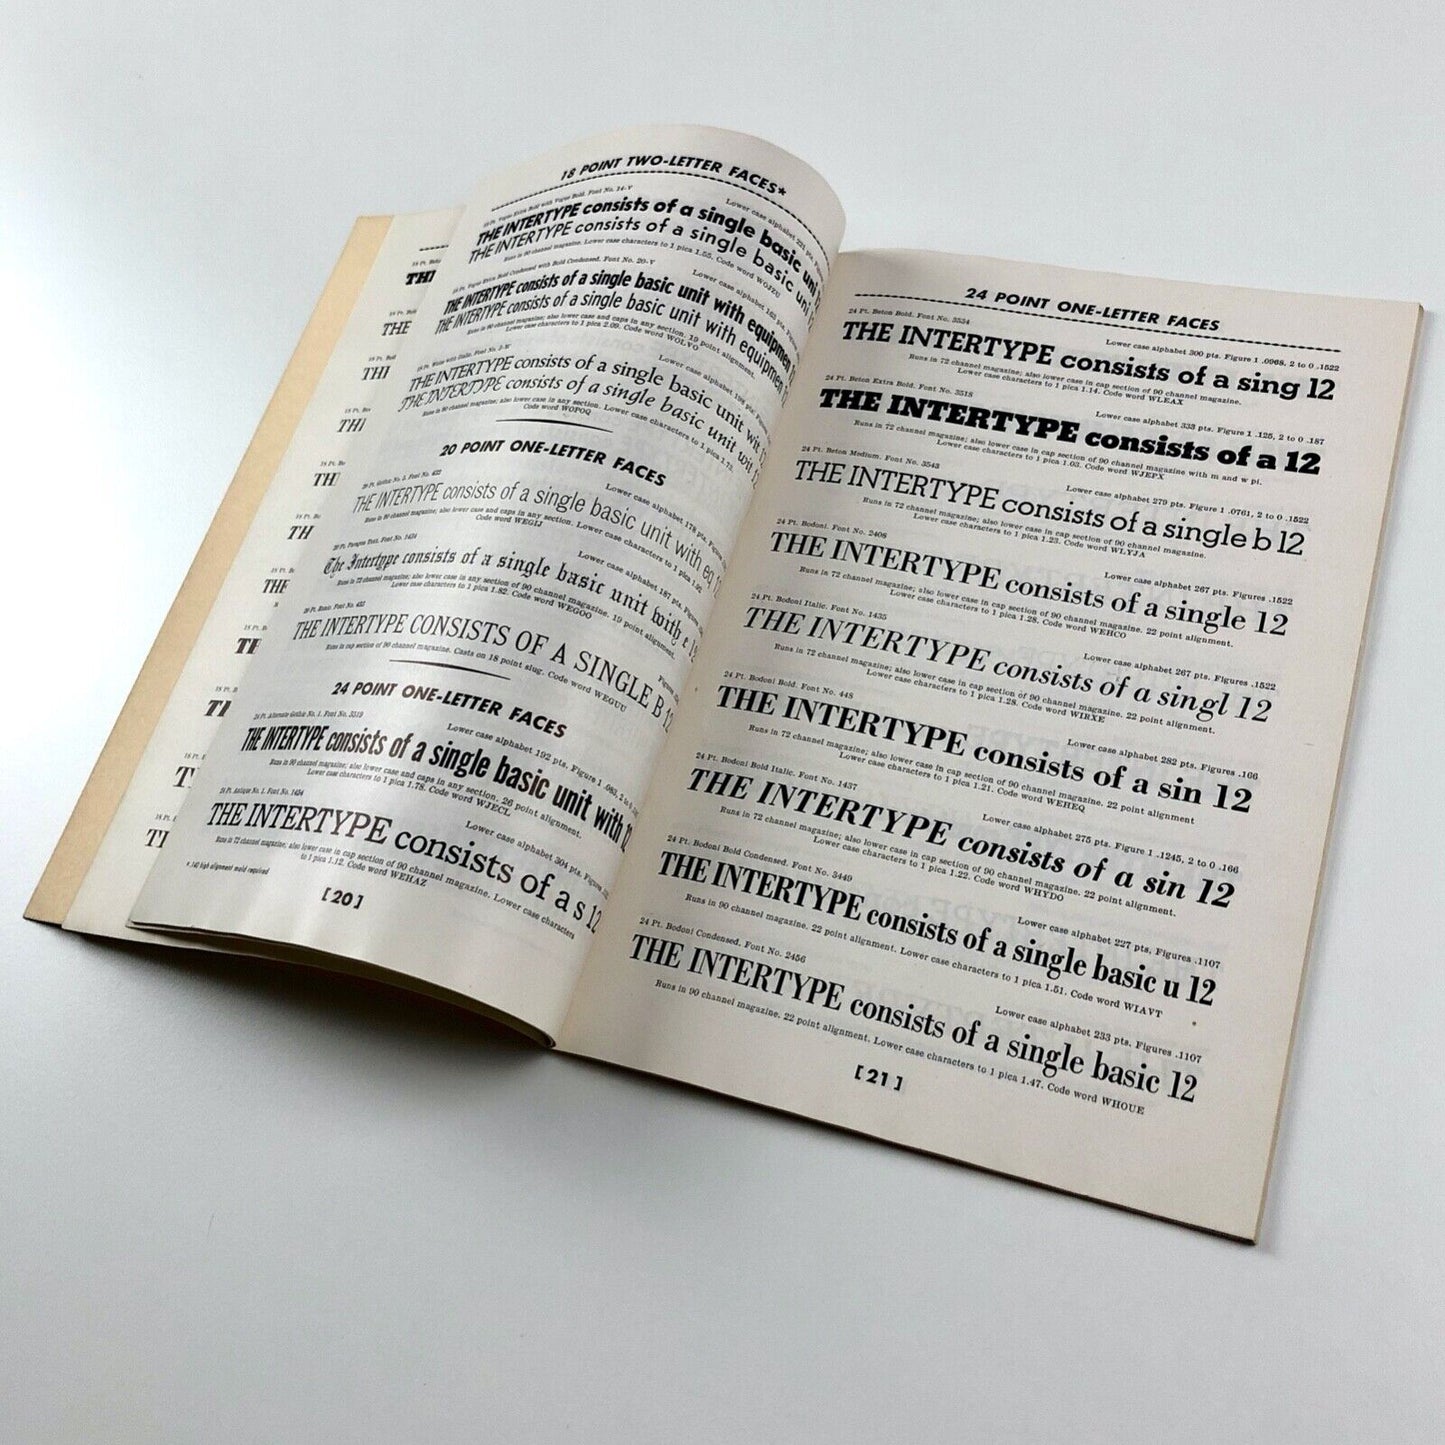 18 POINT TWO-LETTER FACES*
18 Pt. Vogue Extra Bold with Vogue Bold. Font No. 14-V
Lower case alphabet 221 pts.
THE INTERTYPE consists of a single basic uni
THE INTERTYPE consists of a single basic uni
Runs in 90 channel magazine. Lower case characters to 1 pica 1.55. Code word WOFZU
18 Pt. Vogue Extra Bold Condensed with Bold Condensed. Font No. 20-V
Lower case alphabet 163 pts.
THE INTERTYPE consists of a single basic unit with equipmen
THE INTERTYPE consists of a single basic unit with equipmen
Runs in 90 channel magazine; also lower case and caps in any section. 19 point alignment.
Lower case characters to 1 pica 2.09. Code word WOLVO
Lower case alphabet 198 pts.
THE INTERTYPE consists of a single basic unit wit
THE INTERTYPE consists of a single basic unit wit
Runs in 90 channel magazine. Lower case characters to 1 pica 1.73.
Code word WOPOQ
20 POINT ONE-LETTER FACES
20 Pt. Gothic No. 2. Font No. 422
Lower case alphabet 178 pts.
THE INTERTYPE consists of a single basic unit with eq 12
Runs in 90 channel magazine; also lower case and caps in any section. Lower case characters to 1 pica 1.92.
Code word WEGIJ
20 Pt. Paragon Text. Font No. 1424
Lower case alphabet 187 pts.
The Intertype consists of a single basic unit with e 12
Runs in 72 channel magazine; also lower case in any section of 90 channel magazine. 19 point alignment.
Lower case characters to 1 pica 1.82. Code word WEGOO
20 Pt. Font No. 432
THE INTERTYPE CONSISTS OF A SINGLE B 12
Runs in cap section of 90 channel magazine. Casts on 18 point slug. Code word WEGUU
24 POINT ONE-LETTER FACES
24 Pt. Alternate Gothic No. 1. Font No. 3519
Lower case alphabet 192 pts. Figure 1 .083,
THE INTERTYPE consists of a single basic unit with 12
Runs in 90 channel magazine; also lower case and caps in any section. 26 point alignment.
Lower case characters to 1 pica 1.78. Code word WJECL
24 Pt. Antique No. 1. Font No. 1434
Lower case alphabet 304 pts.
THE INTERTYPE consists of a s 12
Runs in 72 channel magazine; also lower case in cap section of 90 channel magazine. Lower case characters
to 1 pica 1.12. Code word WEHAZ
*.140 high alignment mold required
[20]
24 POINT ONE-LETTER FACES
24 Pt. Beton Bold. Font No. 3534
Lower case alphabet 300 pts. Figure 1 .0968, 2 to 0 .1522
THE INTERTYPE consists of a sing 12
Runs in 72 channel magazine; also lower case in cap section of 90 channel magazine.
Lower case characters to 1 pica 1.14. Code word WLEAX
24 Pt. Beton Extra Bold. Font No. 3518
Lower case alphabet 333 pts. Figure 1 .125, 2 to 0 .187
THE INTERTYPE consists of a 12
Runs in 72 channel magazine; also lower case in cap section of 90 channel magazine with m and w pi.
Lower case characters to 1 pica 1.03. Code word WJEPX
24 Pt. Beton Medium. Font No. 3543
Lower case alphabet 279 pts. Figure 1 .0761, 2 to 0 .1522
THE INTERTYPE consists of a single b 12
Runs in 72 channel magazine; also lower case in cap section of 90 channel magazine.
Lower case characters to 1 pica 1.23. Code word WLYJA
24 Pt. Bodoni. Font No. 2408
Lower case alphabet 267 pts. Figures .1522
THE INTERTYPE consists of a single 12
Runs in 72 channel magazine; also lower case in cap section of 90 channel magazine. 22 point alignment.
Lower case characters to 1 pica 1.28. Code word WEHCO
24 Pt. Bodoni Italic. Font No. 1435
Lower case alphabet 267 pts. Figures .1522
THE INTERTYPE consists of a singl 12
Runs in 72 channel magazine; also lower case in cap section of 90 channel magazine. 22 point alignment.
Lower case characters to 1 pica 1.28. Code word WIRXE
24 Pt. Bodoni Bold. Font No. 448
Lower case alphabet 282 pts. Figures .166
THE INTERTYPE consists of a sin 12
Runs in 72 channel magazine; also lower case in cap section of 90 channel magazine. 22 point alignment
Lower case characters to 1 pica 1.21. Code word WEHEQ
24 Pt. Bodoni Bold Italic. Font No. 1437
Lower case alphabet 275 pts. Figure 1 .1245, 2 to 0 .166
THE INTERTYPE consists of a sin 12
Runs in 72 channel magazine; also lower case in cap section of 90 channel magazine. 22 point alignment.
Lower case characters to 1 pica 1.22. Code word WHYDO
24 Pt. Bodoni Bold Condensed. Font No. 3449
Lower case alphabet 227 pts. Figures .1107
THE INTERTYPE consists of a single basic u 12
Runs in 90 channel magazine. 22 point alignment. Lower case characters to 1 pica 1.51. Code word WIAVT
24 Pt. Bodoni Condensed. Font No. 2456
Lower case alphabet 233 pts. Figures .1107
THE INTERTYPE consists of a single basic 12
Runs in 90 channel magazine. 22 point alignment. Lower case characters to 1 pica 1.47. Code word WHOUE
[21]